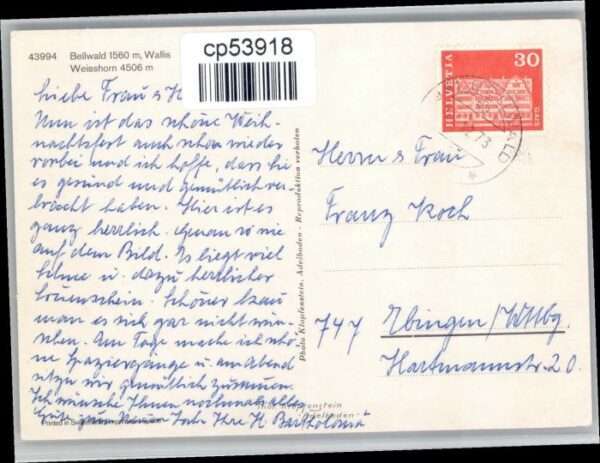 43994 Bellwald 1560 m, Wallis
Weisshorn 4506 m
cp53918
HELVETIA 30
73
Liebe Frau & H
Nun ist das schöne Weih-
nachtsfest auch schon wieder
vorbei und ich hoffe, dass Sie
es gesund und gemütlich ver-
bracht haben. Hier ist es
ganz herrlich. Genau so wie
auf dem Bild. Es liegt viel
Schnee u. dazu herrlicher
Sonnenschein. Schöner kann
man es sich gar nicht wün-
schen. Am Tage mache ich schö-
ne Spaziergänge u. am Abend
sitzen wir gemütlich zusammen.
Ich wünsche Ihnen nochmals alles
Gute zum Neuen Jahr Ihre H. Bartholomä
Photo Klopfenstein, Adelboden - Reproduktion verboten
Herrn & Frau
Franz Koch
747 Ebingen/Wttbg.
Hartmannstr. 20.
Klopfenstein
Adelboden
Printed in